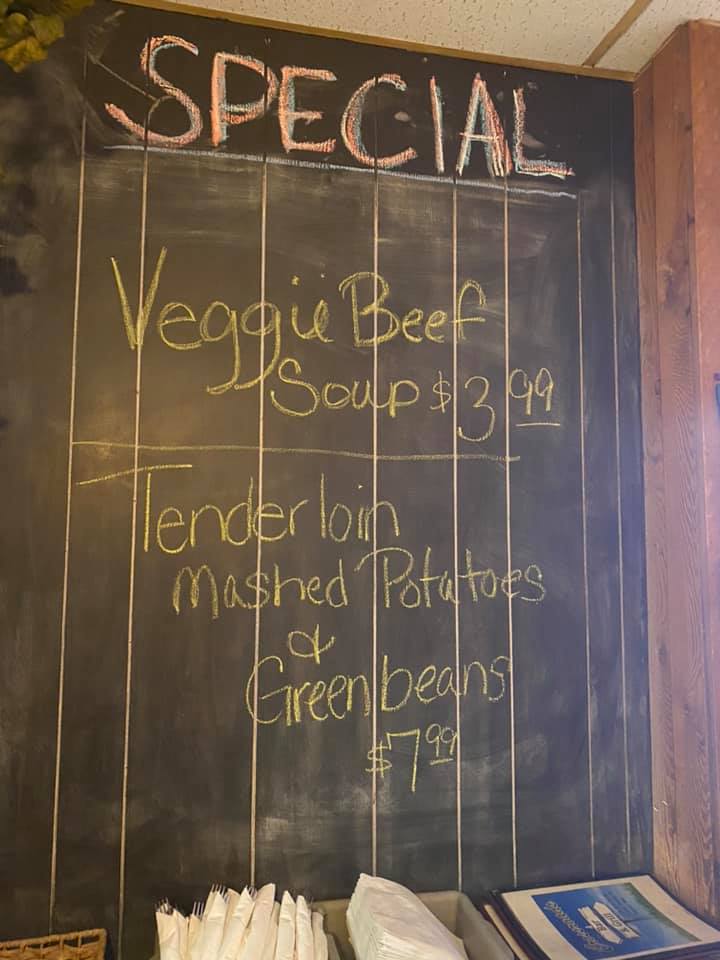 SPECIAL
Veggie Beef
Soup $3.99
Tenderloin
Mashed Potatoes
&
Greenbeans
$7.99